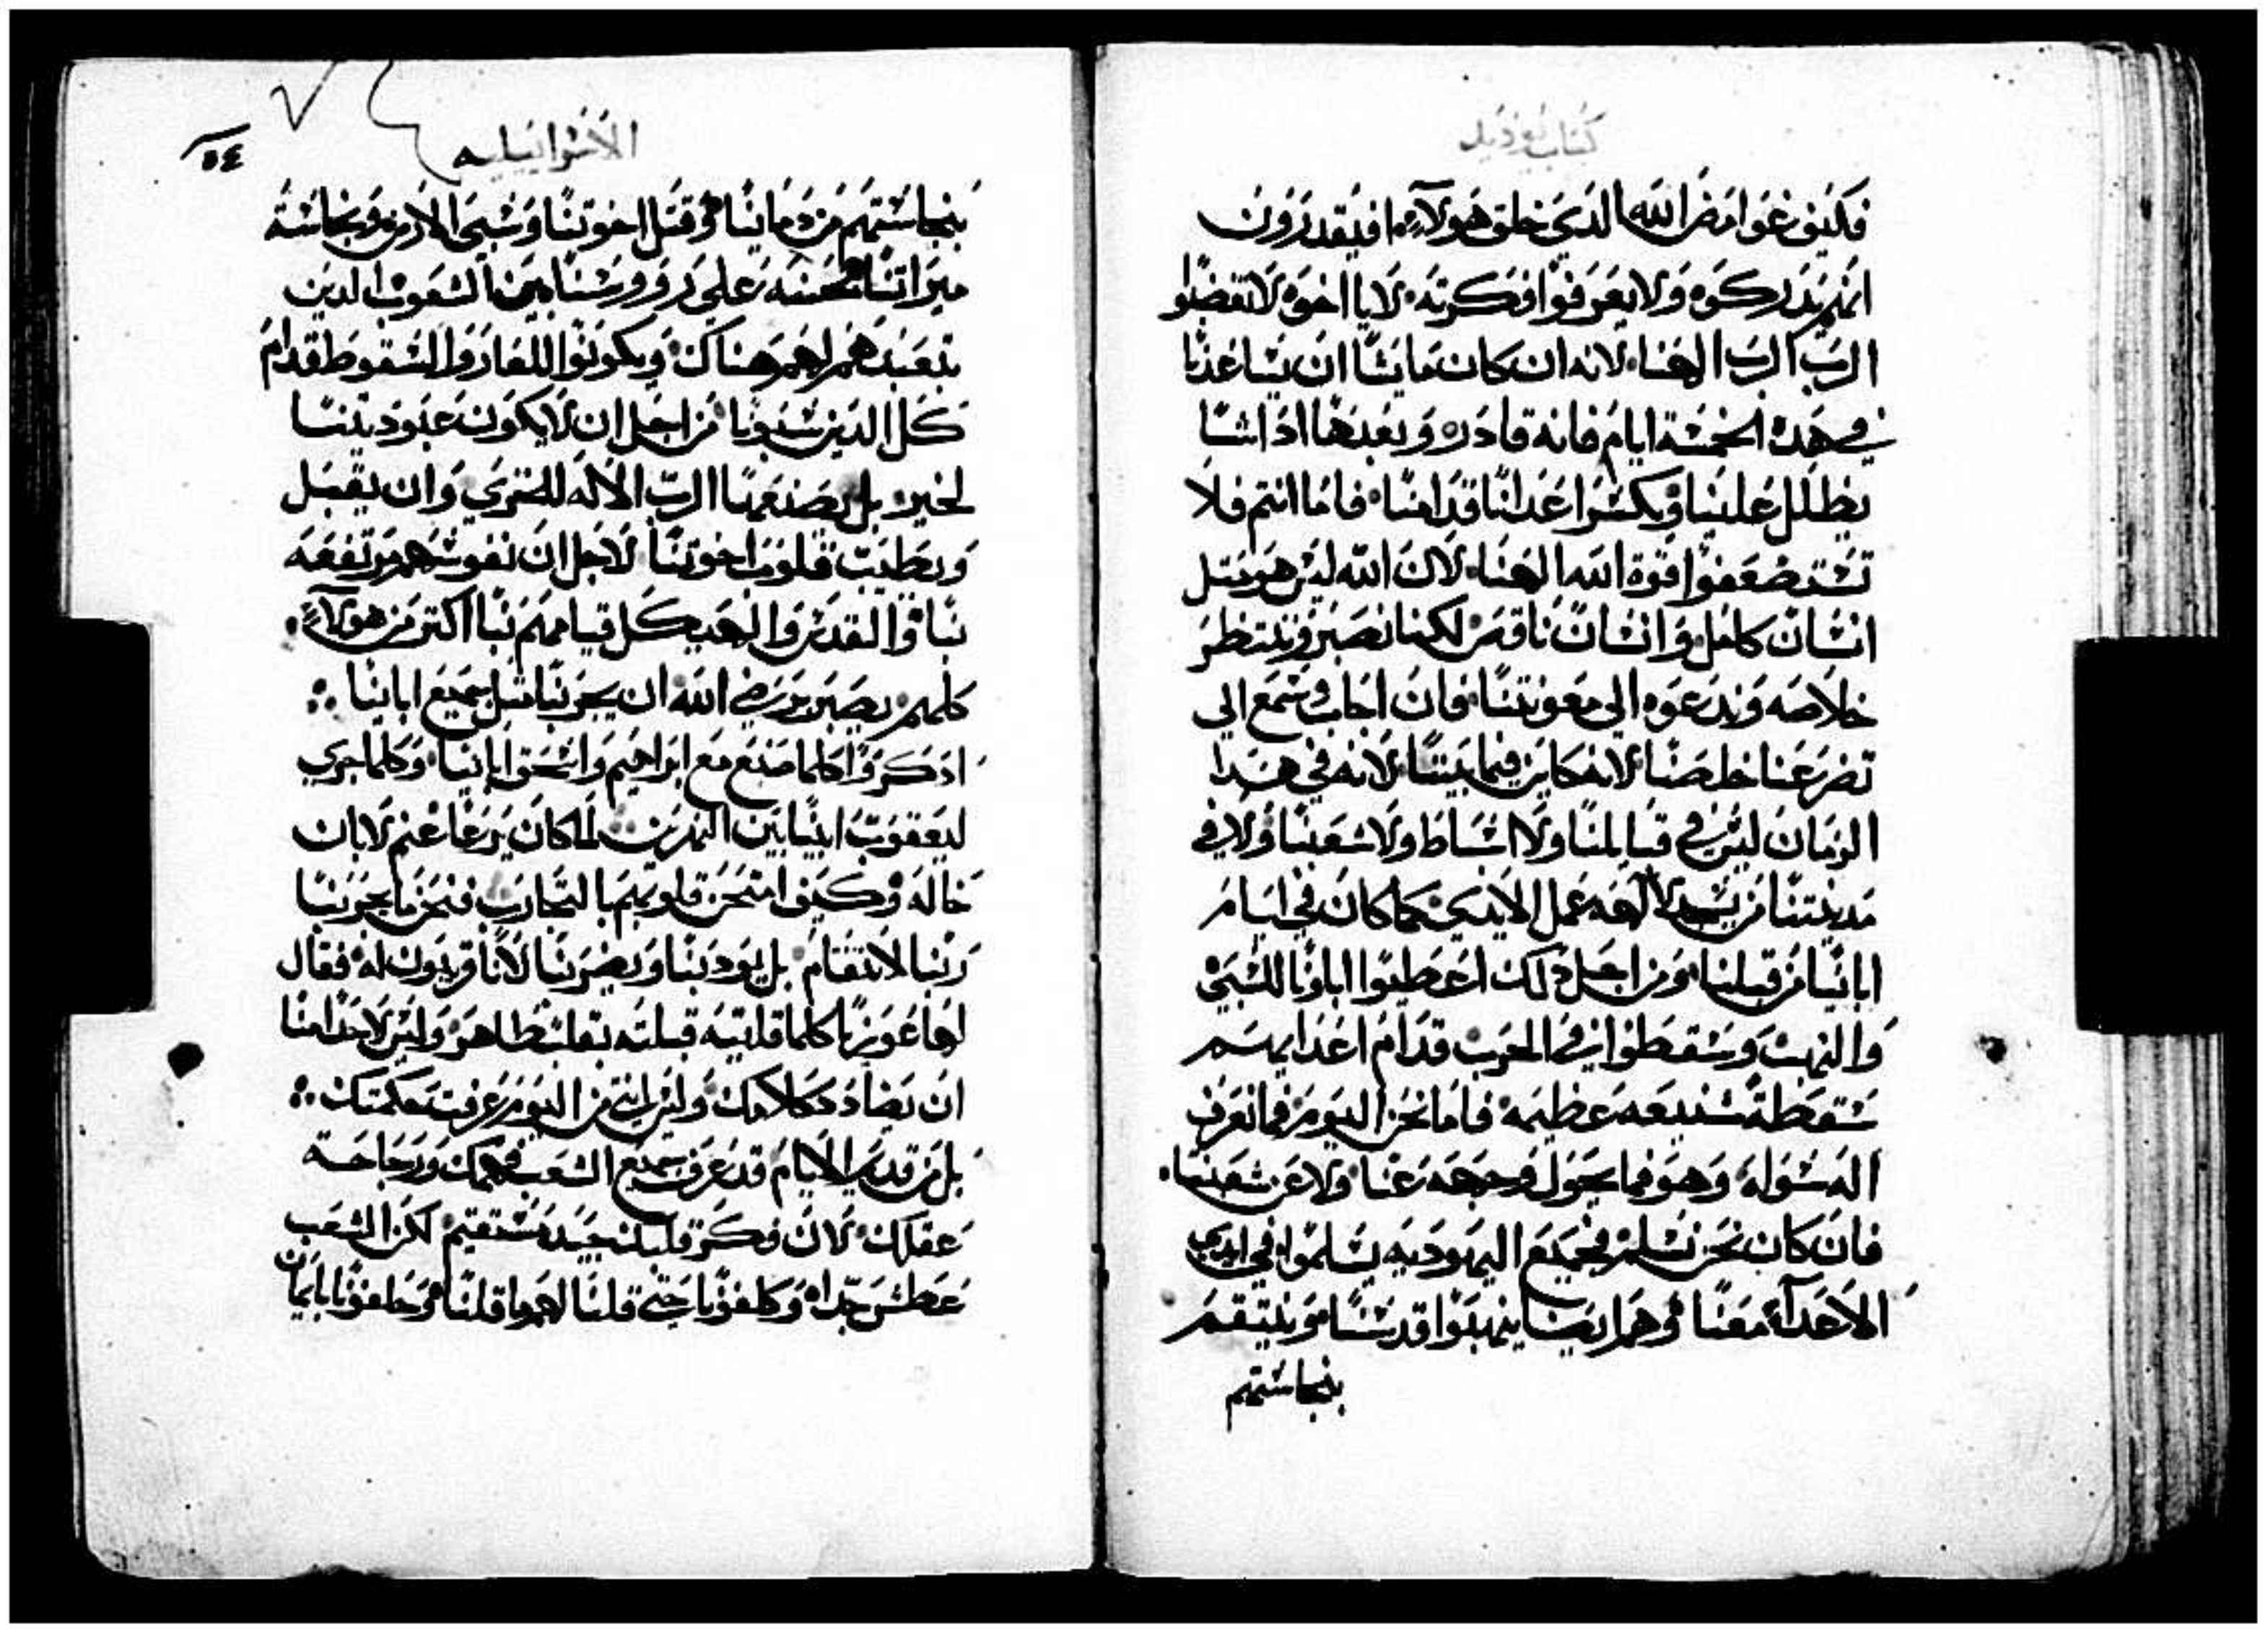 كتاب يوديت
فكيف غوامض الله الذي خلق هولاء افيقدرون
انهم يدركوه ولا يعرفوا فكرته لا يا اخوه لا تغضبوا
الرب الرب الهنا لانه ان كان ما يشا ان يساعدنا
في هذه الخمسة ايام فانه قادره وبعدها اذا شا
يظلل علينا ويكسر اعدانا قدامنا فاما انتم فلا
تستضعفوا قوة الله الهنا لان الله ليس هو متل
انسان كامل وانسان ناقص لكننا نصبر وننتظر
خلاصه وندعوه الى معونتنا فان اجاب وسمع الى
تضرعنا خلصنا لانه كاين فيما بيننا لانه في هذا
الزمان ليس في قبايلنا ولا اسباط ولا شعبنا ولا في
مدينتنا من يسجد لالهه عمل الايدي كما كان في ايام
اباينا من قبلنا ومن اجل ذلك اعطيوا اباونا للسبي
والنهب وسقطوا في الحرب قدام اعدايهم
سقطة شنيعه عظيمه فاما نحن اليوم فما نعرف
اله سواه وهو فما يحول وجهه عنا ولا عن شعبنا
فان كان نحن نسلم فجميع اليهوديه يسلموا في ايدي
الاعداء معنا وهم ايضا ينهبوا قدسنا وينتقم
بنجاستهم
الاسراييليه
٥٤
بنجاستهم من دماينا وقتل اخوتنا وسبي الارض ونجاسة
ميراتنا الحسنه على روورسنا بين الشعوب الدين
نتعبدهم لهم هناك ويكونوا للعار والسقوط قدام
كل الدين سبونا من اجل ان لا يكون عبوديتنا
لخير بل يصنعها الرب الاله للخزي وان يقبل
ويطيب قلوب اخوتنا لاجل ان نفوسهم مرتفعه
بنا والقدس والهيكل قيامهم بنا اكتر من هولاء
كلهم يصبر يرضي الله ان يجربنا متل جميع اباينا
اذكروا كلما صنع مع ابراهيم واسحق اباينا وكلما جرى
ليعقوب ابينا بين النهرين لما كان يرعا غنم لابان
خاله وكيف امتحن قلوبهم بالتجارب فنحن ما يجربنا
ربنا لانتقام بل يودبنا ويضربنا لانا قريبون له فقال
لها عوزيا كلما قلتيه قبلته بقلب طاهر وليس لاحد منا
ان يضادد كلامك وليس انتي من اليوم عرفت حكمتك
بل من قديم الايام قد عرف جميع الشعب فهمك ورجاحة
عقلك لان فكرة قلبك جيده مستقيم لكن الشعب
عطش جدا وكلفونا حتى قلنا لهم ما قلنا وحلفونا بايمان